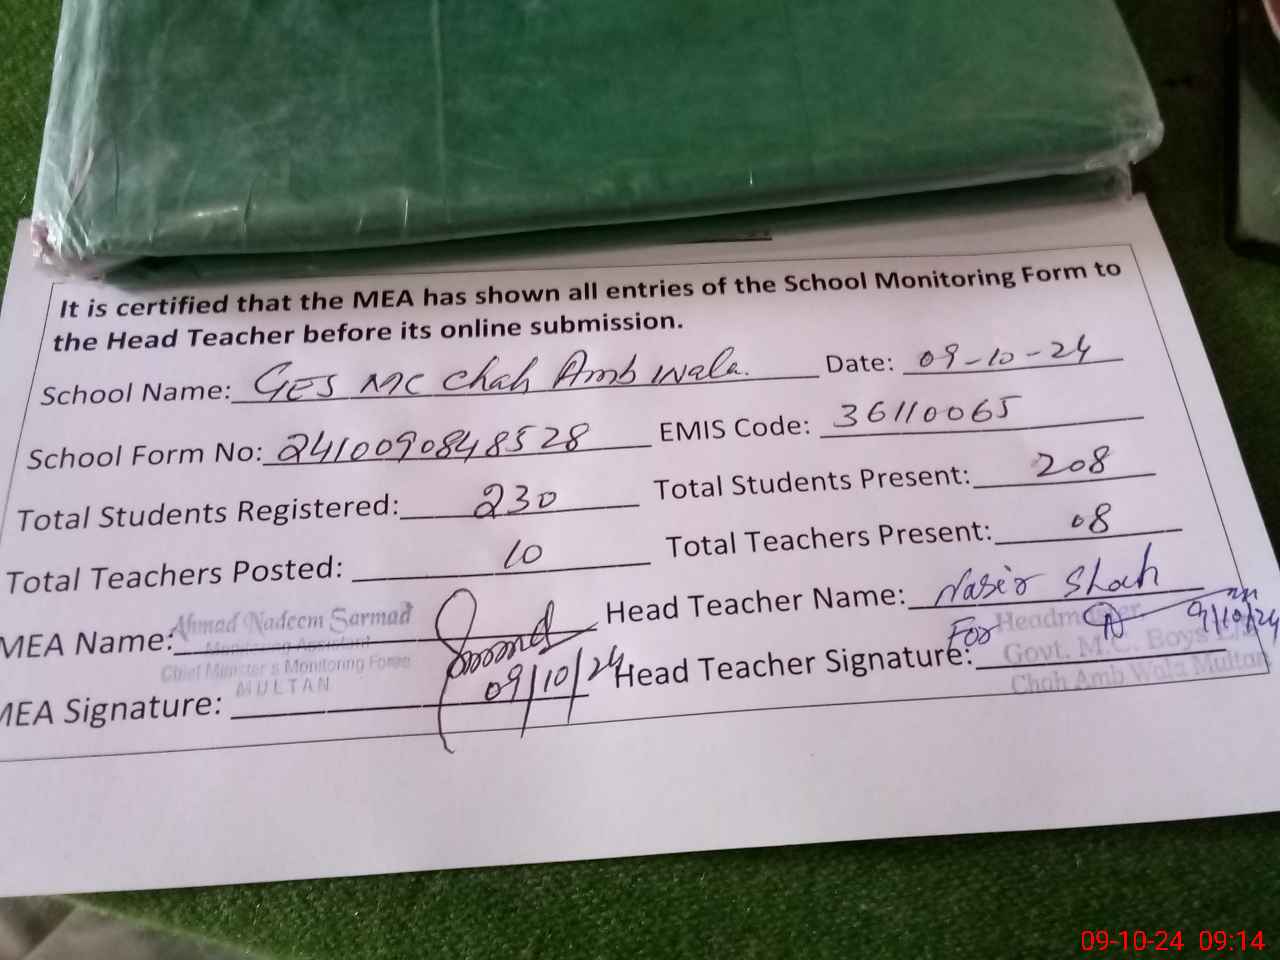 It is certified that the MEA has shown all entries of the School Monitoring Form to
the Head Teacher before its online submission.
School Name: GES MC Chah Amb wala. Date: 09-10-24
School Form No: 2410090848528 EMIS Code: 36110065
Total Students Registered: 230 Total Students Present: 208
Total Teachers Posted: 10 Total Teachers Present: 08
MEA Name: Ahmad Nadeem Sarmad Head Teacher Name: Nasir Shah
Monitoring Assistant
Chief Minister's Monitoring Force
MULTAN
MEA Signature: 09/10/24 Head Teacher Signature: For 9/10/24
Headmaster
Govt. M.C. Boys
Chah Amb Wala Multan
09-10-24 09:14